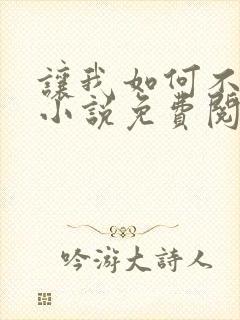 讓我如何不
小說免費閱
吟游大詩人